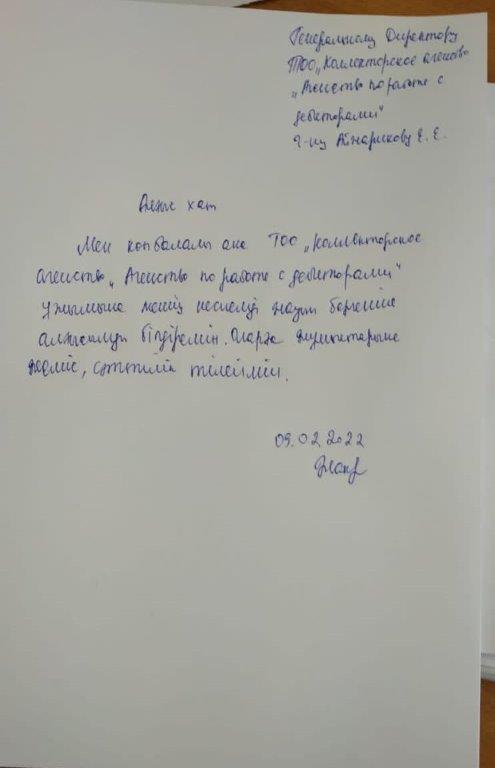 Генеральному Директору
ТОО „Коллекторское агенство
„Агенство по работе с
дебиторами"
г-ну Айнарикову Е. Е.
Алғыс хат
Мен көпбалалы ана ТОО „Коллекторское
агенство „Агенство по работе с дебиторами"
ұжымына менің несиемді жауып бергеніне
алғысымды білдіремін. Оларға жұмыстарына
жеміс, сәттілік тілеймін.
09.02.2022